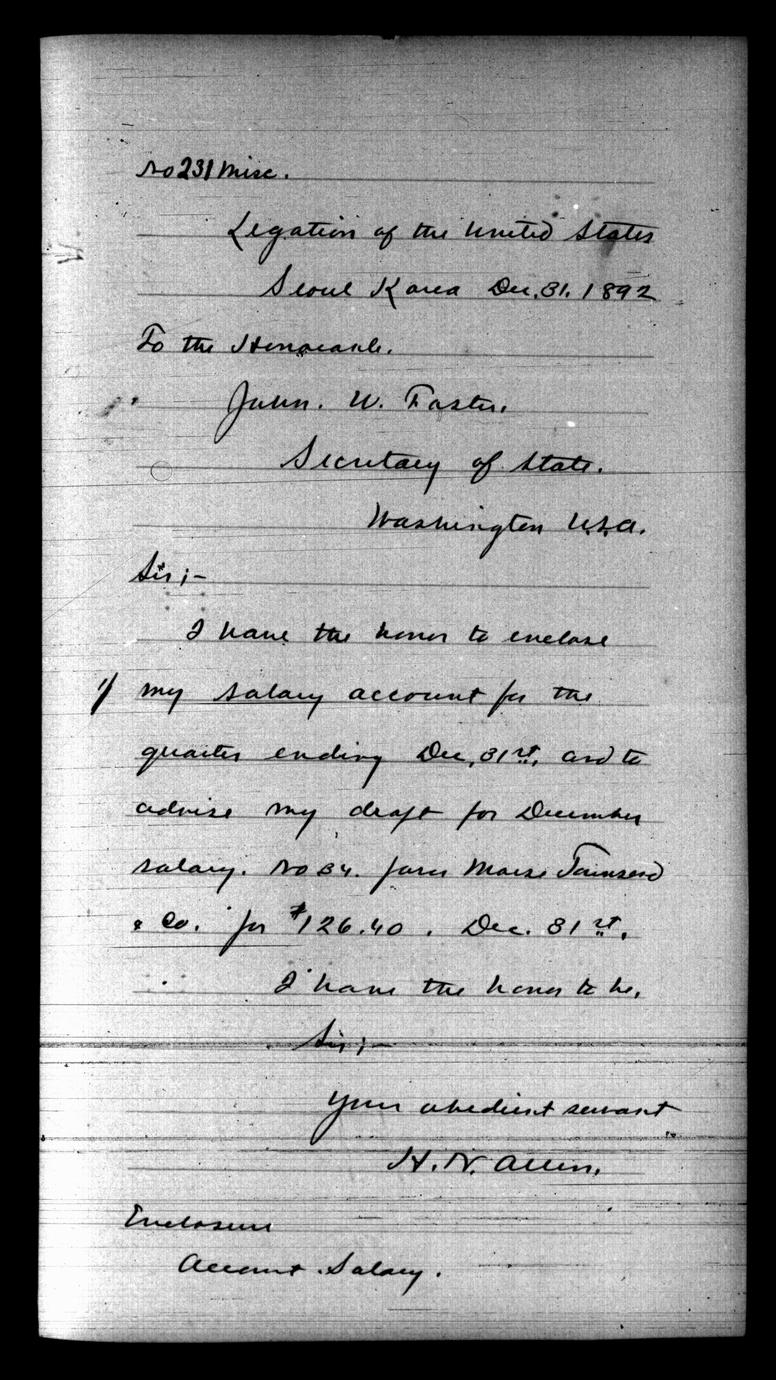 No 231 Misc.
Legation of the United States
Seoul Korea Dec. 31. 1892
To the Honorable.
John. W. Foster.
Secretary of State.
Washington U.S.A.
Sir;-
I have the honor to enclose
1/ my salary account for the
quarter ending Dec, 31st, and to
advise my draft for December
salary. No 34. favor Morse Townsend
& Co. for $126.40. Dec. 31st.
I have the honor to be,
Sir;-
Your obedient servant
H. N. Allen,
Enclosure
Account Salary.